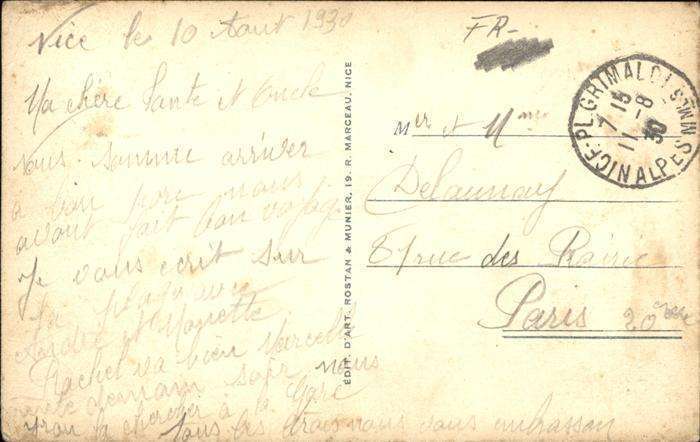 Nice le 10 Aout 1930
Ma chère Tante et Oncle
nous somme arriver
a bon pore nous
avont fait bon voyage
Je vous ecrit sur
la plage avec
André et Monette
Rachel va bien Marcelle
demain soir nous
iron la chercher à la Gare
tous les trois nous vous embrasson
EDIT. D'ART. ROSTAN & MUNIER, 19. R. MARCEAU, NICE
FR-
NICE-PL. GRIMALDI
ALPES MMES
7 15
11 -8
30
Mer et Mme
Delaunay
81 rue des
Paris 20e